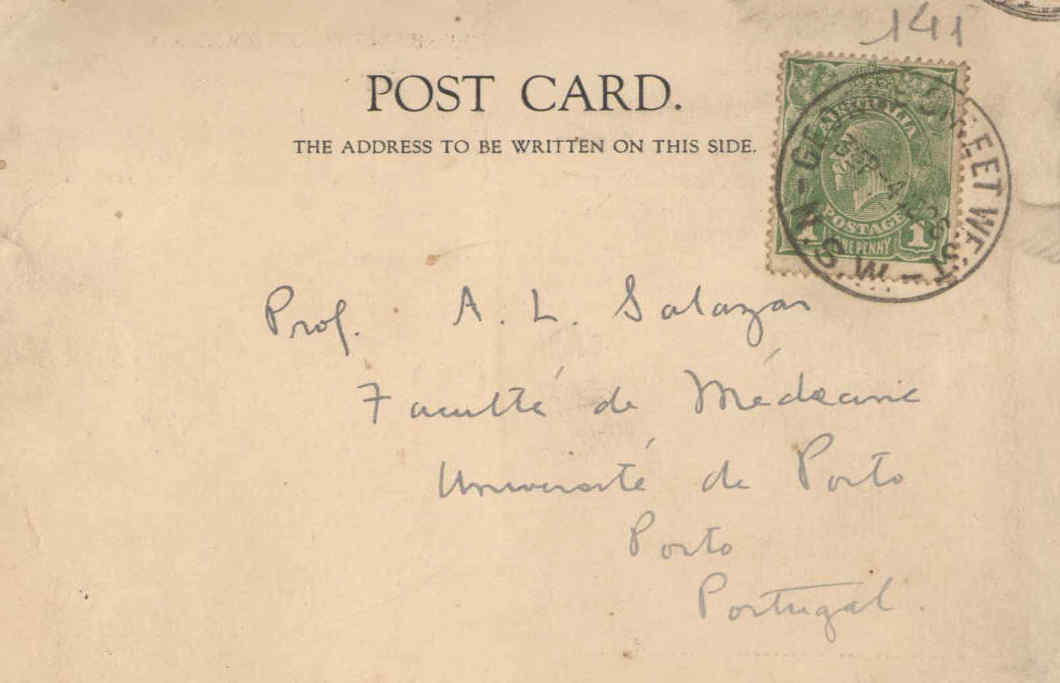 141
POST CARD.
THE ADDRESS TO BE WRITTEN ON THIS SIDE.
AUSTRALIA
POSTAGE
1 ONE PENNY 1
GEORGE STREET WEST
SP-4
- N.S.W -
Prof. A. L. Salazar
Faculté de Médecine
Université de Porto
Porto
Portugal.